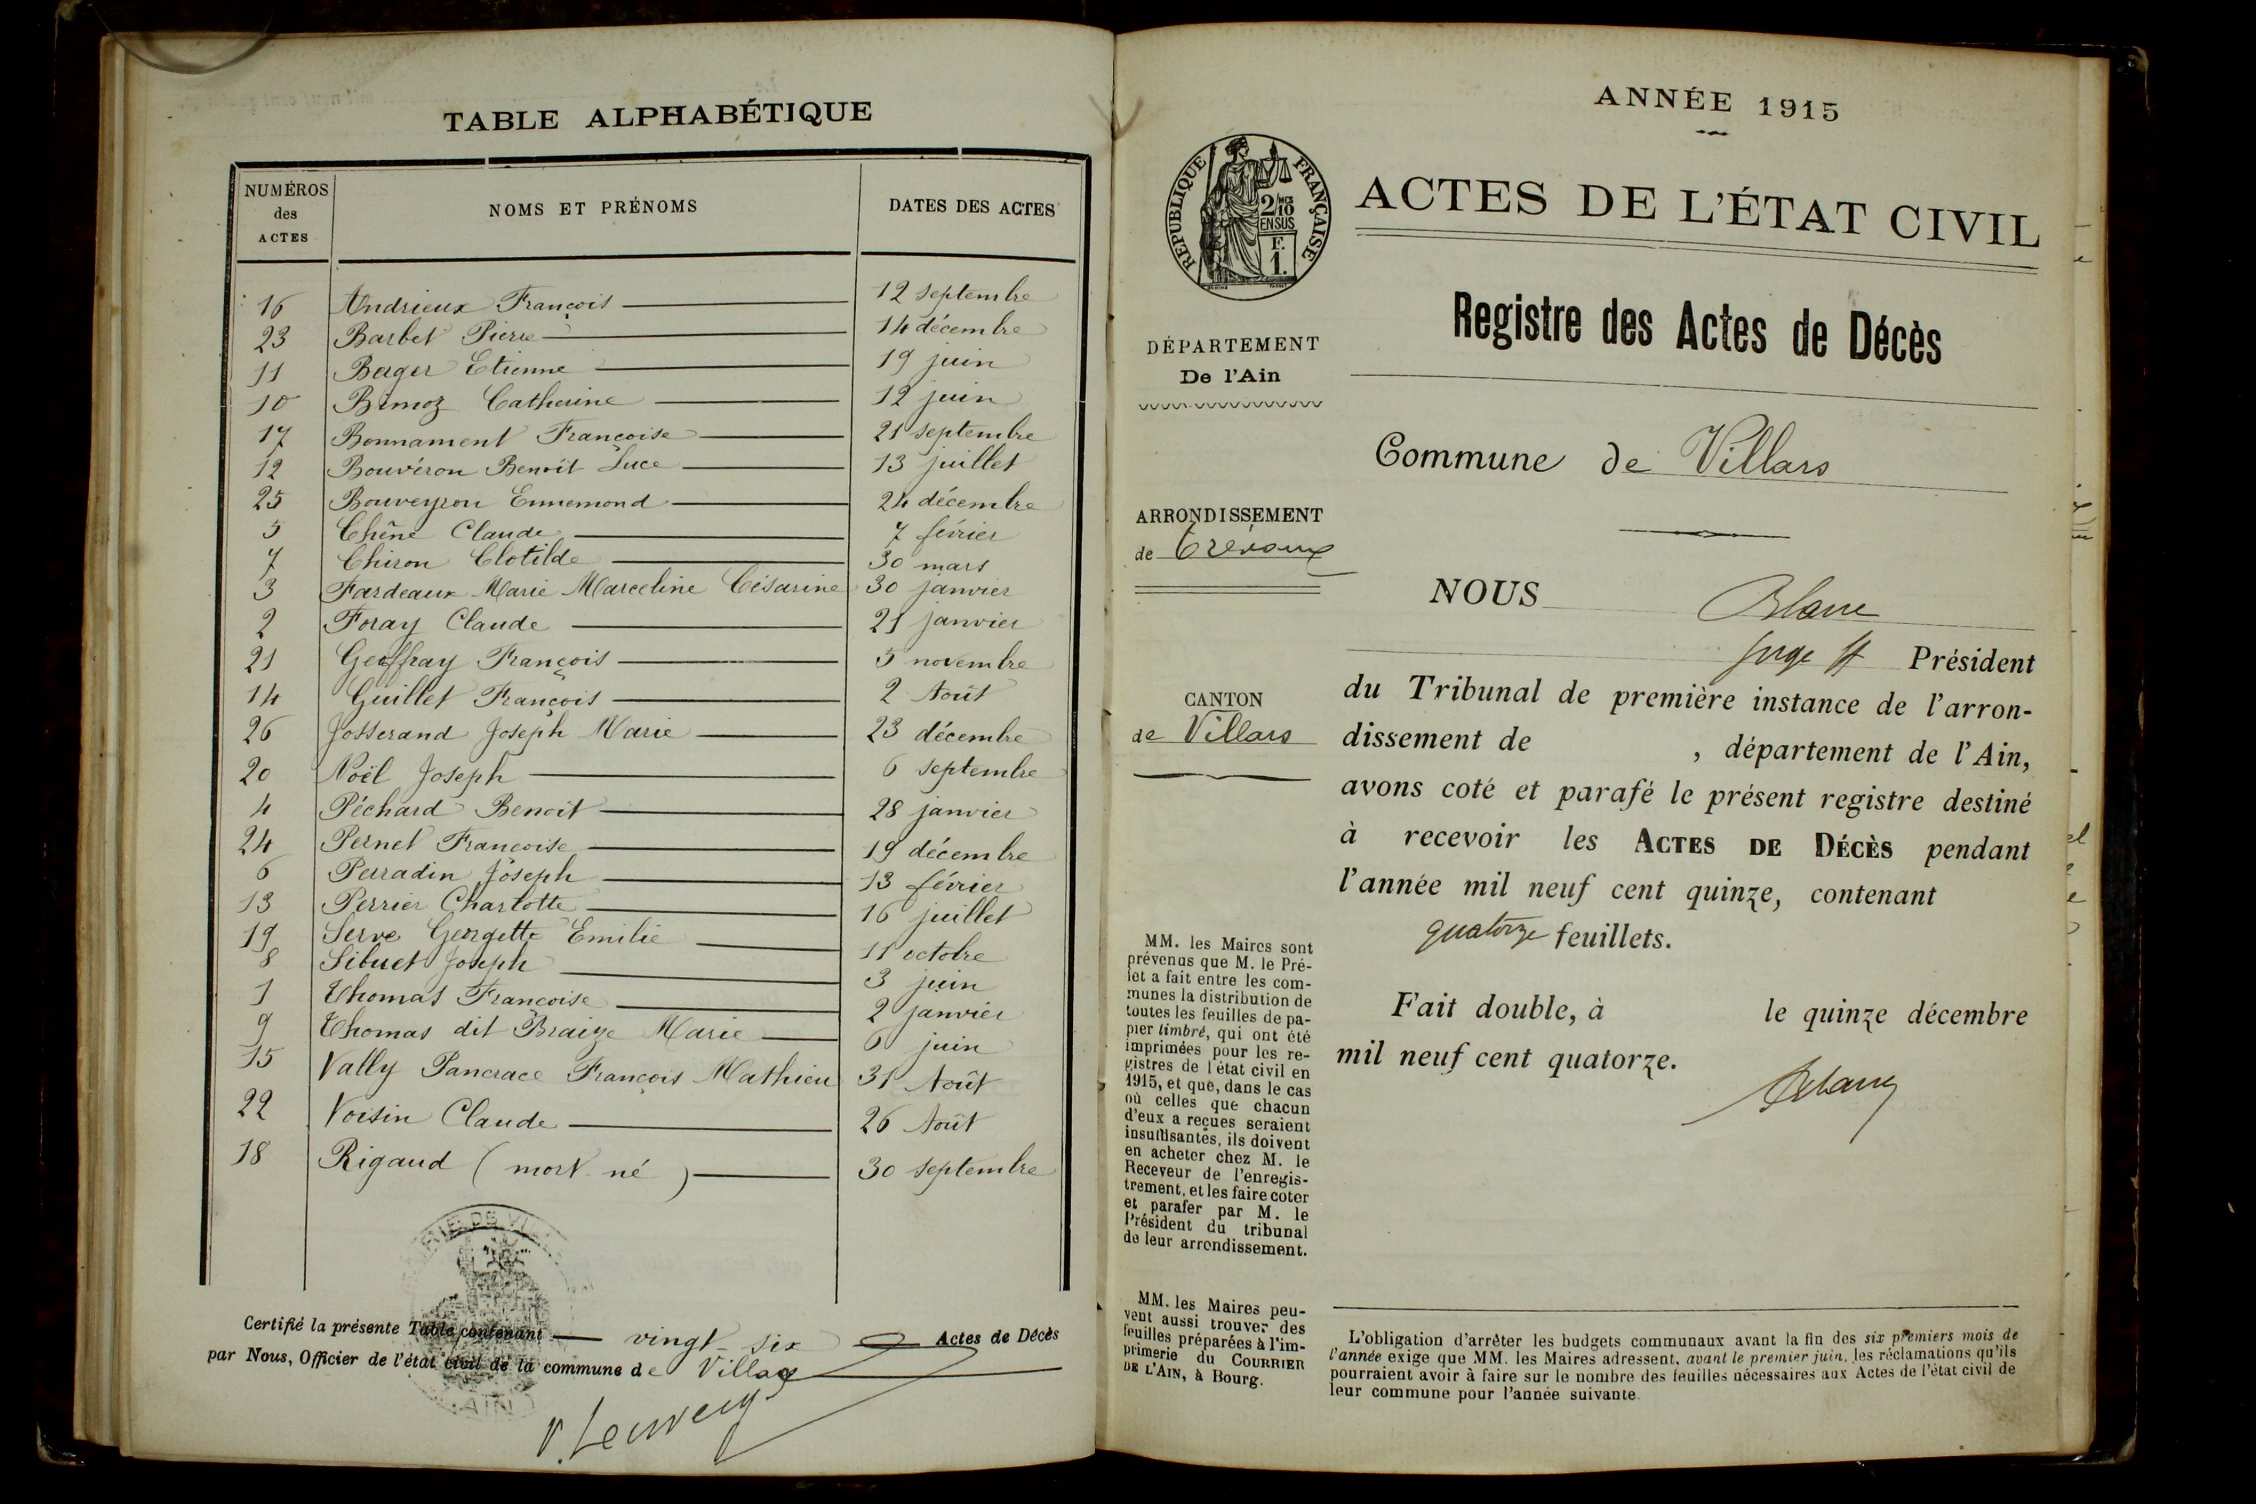 TABLE ALPHABÉTIQUE
NUMÉROS des ACTES
NOMS ET PRÉNOMS
DATES DES ACTES
16 Andrieux François 12 septembre
23 Barbet Pierre 14 décembre
11 Berger Etienne 19 juin
10 Catherine 12 juin
17 Bonnament Françoise 21 septembre
12 Bouvéron Benoît Luce 13 juillet
25 Bouveyron Ennemond 24 décembre
5 Chêne Claude 7 février
7 Chiron Clotilde 30 mars
3 Fardeaux Marie Marceline Césarine 30 janvier
2 Foray Claude 21 janvier
21 Geoffray François 5 novembre
14 Guillet François 2 Août
26 Josserand Joseph Marie 23 décembre
20 Noël Joseph 6 septembre
4 Péchard Benoit 28 janvier
24 Pernet Françoise 19 décembre
6 Perradin Joseph 13 février
13 Perrier Charlotte 16 juillet
19 Serve Georgette Emilie 11 octobre
8 Sibuet Joseph 3 juin
1 Thomas Françoise 2 janvier
9 Thomas dit Braize Marie 6 juin
15 Vally Pancrace François Mathieu 31 Août
22 Voisin Claude 26 Août
18 Rigaud (mort né) 30 septembre
Certifié la présente Table contenant vingt-six Actes de Décès
par Nous, Officier de l'état civil de la commune de Villars
AIN
ANNÉE 1915
RÉPUBLIQUE FRANÇAISE
2/10 MES
EN SUS
F.
1.
ACTES DE L'ÉTAT CIVIL
Registre des Actes de Décès
DÉPARTEMENT
De l'Ain
Commune de Villars
ARRONDISSEMENT
de Trévoux
NOUS
Juge Président
du Tribunal de première instance de l'arron-
dissement de , département de l'Ain,
avons coté et parafé le présent registre destiné
à recevoir les ACTES DE DÉCÈS pendant
l'année mil neuf cent quinze, contenant
quatorze feuillets.
Fait double, à le quinze décembre
mil neuf cent quatorze.
CANTON
de Villars
MM. les Maires sont
prévenus que M. le Pré-
fet a fait entre les com-
munes la distribution de
toutes les feuilles de pa-
pier timbré, qui ont été
imprimées pour les re-
gistres de l'état civil en
1915, et que, dans le cas
où celles que chacun
d'eux a reçues seraient
insuffisantes, ils doivent
en acheter chez M. le
Receveur de l'enregis-
trement, et les faire coter
et parafer par M. le
Président du tribunal
de leur arrondissement.
MM. les Maires peu-
vent aussi trouver des
feuilles préparées à l'im-
primerie du COURRIER
DE L'AIN, à Bourg.
L'obligation d'arrêter les budgets communaux avant la fin des six premiers mois de
l'année exige que MM. les Maires adressent, avant le premier juin, les réclamations qu'ils
pourraient avoir à faire sur le nombre des feuilles nécessaires aux Actes de l'état civil de
leur commune pour l'année suivante.